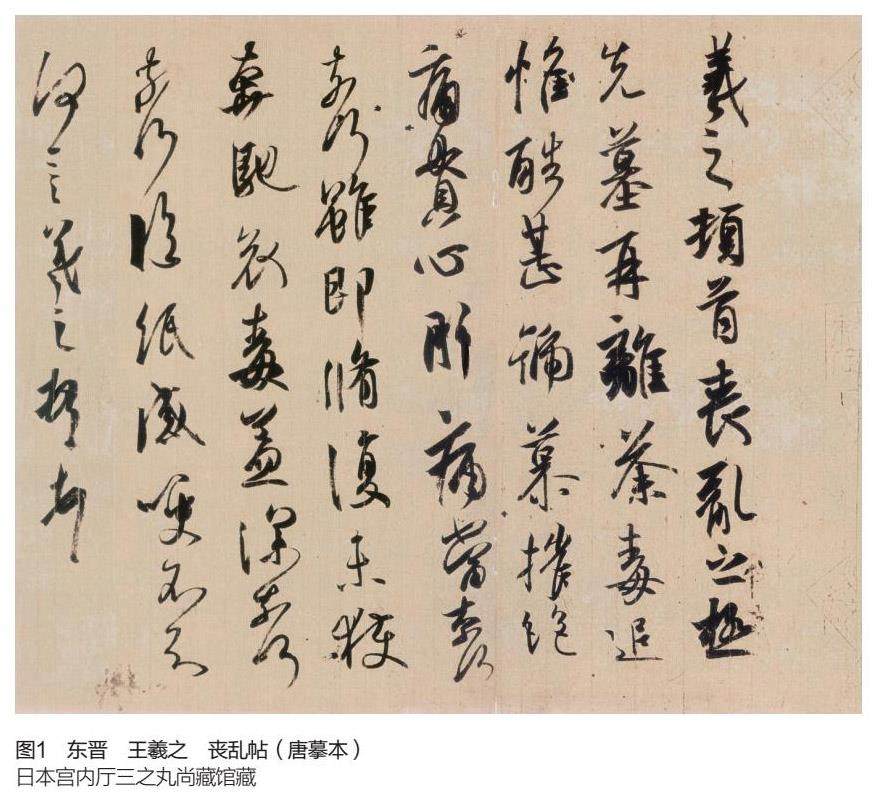 羲之頓首喪亂之極
先墓再離荼毒追
惟酷甚號慕摧絕
痛貫心肝痛當奈何
奈何雖即脩復未獲
奔馳哀毒益深奈何
奈何臨紙感哽不知
何言羲之頓首頓首
图1 东晋 王羲之 丧乱帖（唐摹本）
日本宫内厅三之丸尚藏馆藏